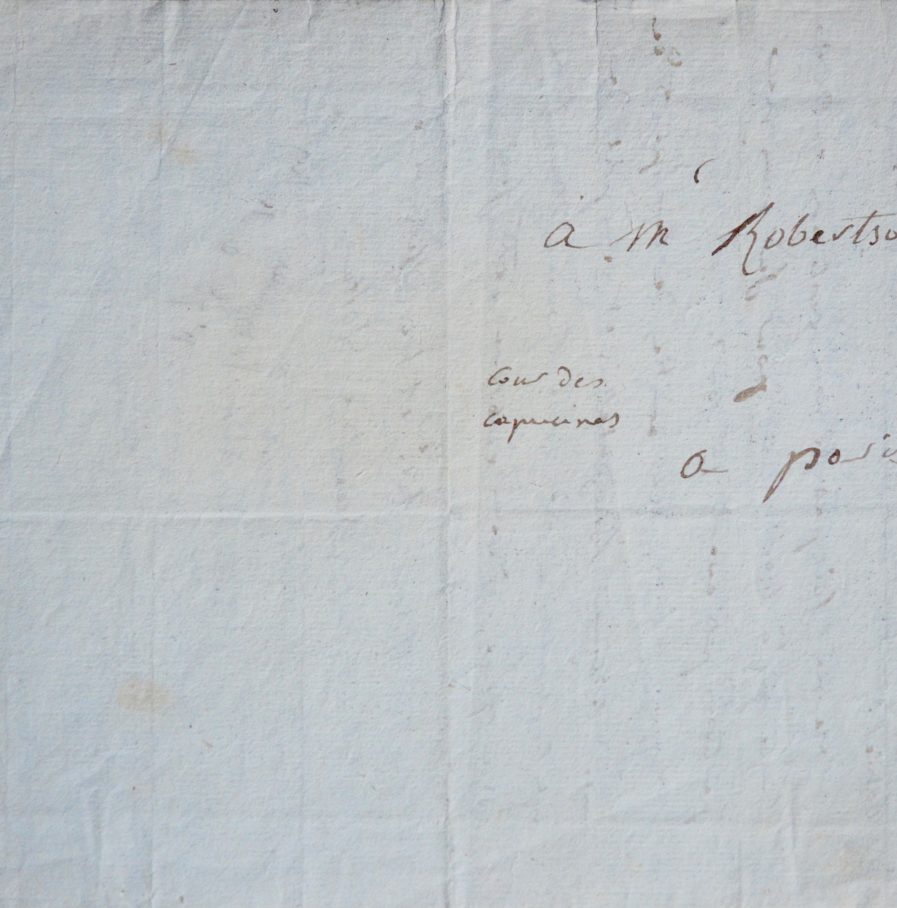 à mr Robertso
cour des
capucines
a paris